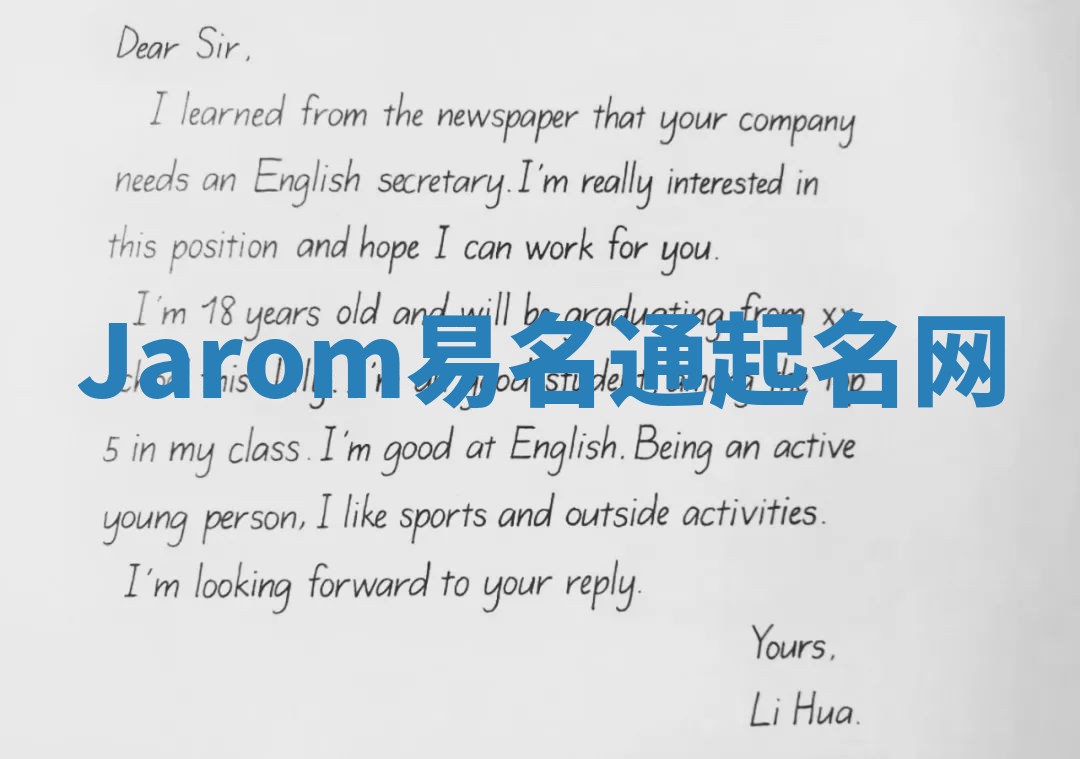 Dear Sir,
I learned from the newspaper that your company
needs an English secretary. I'm really interested in
this position and hope I can work for you.
I'm 18 years old and will be graduating from xx
Jarom易名通起名网
this July. I'm good student, among the top
5 in my class. I'm good at English. Being an active
young person, I like sports and outside activities.
I'm looking forward to your reply.
Yours,
Li Hua.